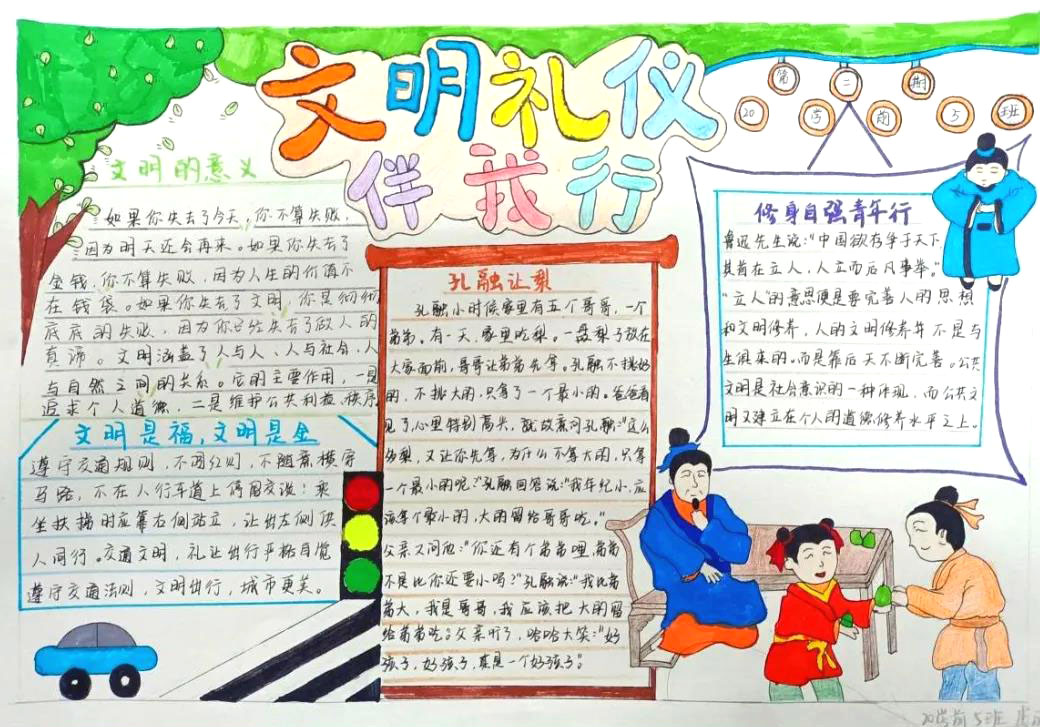 文明礼仪
伴我行
第二期
20学前5班
文明的意义
如果你失去了今天，你不算失败，
因为明天还会再来。如果你失去了
金钱，你不算失败，因为人生的价值不
在钱袋。如果你失去了文明，你是彻彻
底底的失败，因为你已经失去了做人的
真谛。文明涵盖了人与人、人与社会、人
与自然之间的关系。它的主要作用，一是
追求个人道德，二是维护公共利益、秩序
文明是福，文明是金
遵守交通规则，不闯红灯，不随意横穿
马路，不在人行车道上停留交谈：乘
坐扶梯时应靠右侧站立，让出左侧供
人同行。交通文明，礼让出行严格自觉
遵守交通法则，文明出行，城市更美。
孔融让梨
孔融小时候家里有五个哥哥，一个
弟弟。有一天，家里吃梨。一盘梨子放在
大家面前，哥哥让弟弟先拿。孔融不挑好
的，不挑大的，只拿了一个最小的。爸爸看
见了，心里特别高兴，就故意问孔融：“这么
多梨，又让你先拿，为什么不拿大的，只拿
一个最小的呢？”孔融回答说：“我年纪小，应
该拿个最小的，大的留给哥哥吃。”
父亲又问他：“你还有个弟弟哩，弟弟
不是比你还要小吗？”孔融说：“我比弟
弟大，我是哥哥，我应该把大的留
给弟弟吃。父亲听了，哈哈大笑：“好
孩子，好孩子，真是一个好孩子。”
修身自强青年行
鲁迅先生说：“中国欲存争于天下，
其首在立人，人立而后凡事举。”
“立人”的意思便是要完善人的思想
和文明修养，人的文明修养年不是与
生俱来的，而是靠后天不断完善。公共
文明是社会意识的一种体现，而公共文
明又建立在个人的道德修养水平之上。
20学前5班